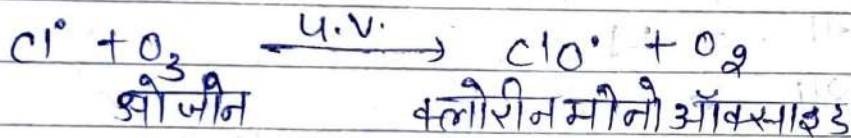 Cl° + O₃ —U.V.→ ClO• + O₂
ओजीन क्लोरीन मोनो ऑक्साइड